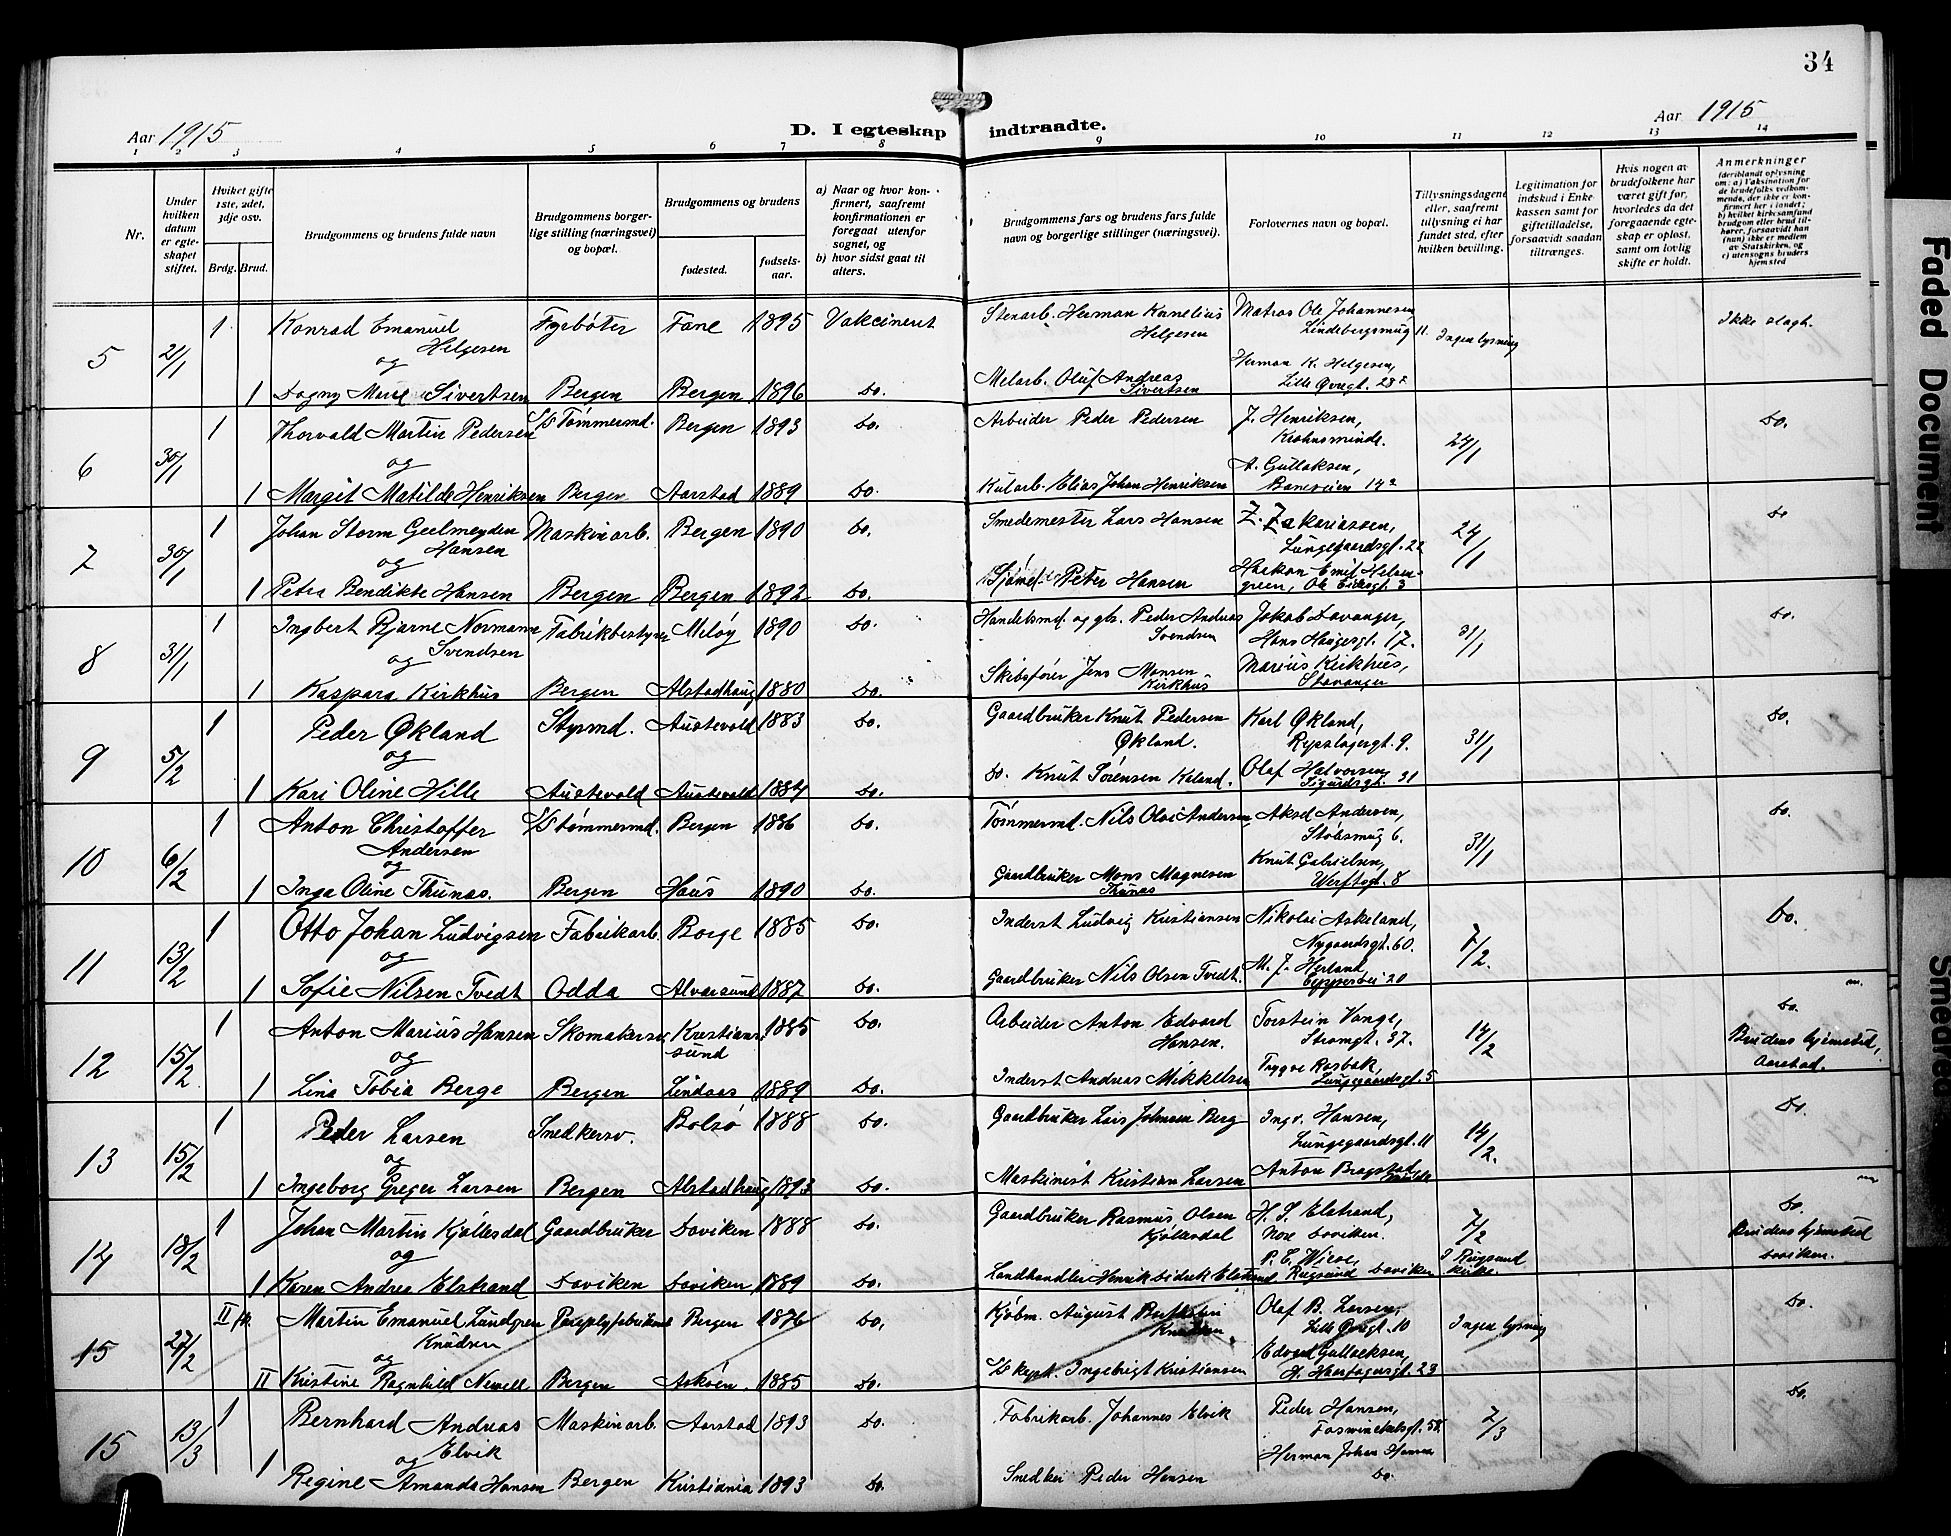 34
Aar 1915
D. I egteskap indtraadte.
Aar 1915
1 2 3 4 5 6 7 8 9 10 11 12 13 14
Nr.
Under hvilken datum er egteskapet stiftet.
Hvilket gifte 1ste, 2det, 3dje osv.
Brdg. Brud.
Brudgommens og brudens fulde navn
Brudgommens borgerlige stilling (næringsvei) og bopæl.
Brudgommens og brudens
fødested.
fødselsaar.
a) Naar og hvor konfirmert, saafremt konfirmationen er foregaat utenfor sognet, og
b) hvor sidst gaat til alters.
Brudgommens fars og brudens fars fulde navn og borgerlige stillinger (næringsvei).
Forlovernes navn og bopæl.
Tillysningsdagene eller, saafremt tillysning ei har fundet sted, efter hvilken bevilling.
Legitimation for indskud i Enkekassen samt for giftetilladelse, forsaavidt saadan tiltrænges.
Hvis nogen av brudefolkene har været gift før, hvorledes da det foregaaende egteskap er opløst, samt om lovlig skifte er holdt.
Anmerkninger (deriblandt oplysning om: a) Vaksination for de brudefolks vedkommende, der ikke er konfirmert her i landet; b) hvilket kirkesamfund brudgom eller brud tilhører, forsaavidt han (hun) ikke er medlem av Statskirken, og c) utensogns bruders hjemsted
5 21/1 1 Konrad Emanuel Helgesen Fyrbøter Fane 1895 Vakcinert Stenarb. Herman Kornelius Helgesen Matros Ole Johannesen, Lindebergsmug 11. Ingen lysning Ikke slagt.
og
1 Dagny Marie Sivertsen Bergen Bergen 1896 Do. Melarb. Oluf Andreas Sivertsen Herman K. Helgesen, Lille Øvregt. 23²
6 30/1 1 Thorvald Martin Pedersen S/S Tømmermd. Bergen 1893 Do. Arbeider Peder Pedersen J. Henriksen, Krohnsminde. 24/1 Do.
og
1 Margit Matilde Henriksen Bergen Aarstad 1889 Do. Kularb. Elias Johan Henriksen A. Gullaksen, Baneveien 14²
7 30/1 1 Johan Storm Geelmeyden Hansen Maskinarb. Bergen 1890 Do. Smedemester Lars Hansen Z. Zakariassen, Lungegaardsgt. 22 24/1 Do
og
1 Petra Bendikte Hansen Bergen Bergen 1892 Do. Peter Hansen Haakon Emil green, Ole 3
8 31/1 1 Ingbert Bjarne Normann Svendsen Fabrikbestyrer Meløy 1890 Do. Handelsmd. og gbr. Peder Andreas Svendsen Jakob Davanger, Hans Haugesgt. 17. 31/1 Do.
og
1 Kaspara Kirkhus Bergen Alstadhaug 1880 Do. Skibsfører Jens Monsen Kirkhus Marius Kirkhus, Stavanger
9 5/2 1 Peder Økland Styrmd. Austevold 1883 Do. Gaardbruker Knut Pedersen Økland. Karl Økland, Repslagergt. 9. 31/1 Do.
og
1 Kari Oline Hille Austevold Austevold 1884 Do. Do. Knut Sørensen Kaland. Olaf Halvorsen, Sigurdsgt. 31
10 6/2 1 Anton Christoffer Andersen S/S tømmermd. Bergen 1886 Do. Tømmermd. Nils Olai Andersen Aksel Andersen, Stølsmug 6. 31/1 Do.
og
1 Inga Oline Thunas. Bergen Haus 1890 Do. Gaardbruker Mons Magnesen Thunas Knut Gabrielsen, Werftsgt. 8
11 13/2 1 Otto Johan Ludvigsen Fabrikarb. Borge 1885 Do. Inderst Ludvig Kristiansen Nikolai Askeland, Nygaardsgt. 60. 7/2. Do.
og
1 Sofie Nilsen Tvedt Odda Alvarsund 1887 Do. Gaardbruker Nils Olsen Tvedt. M. J. Herland 20
12 15/2. 1 Anton Marius Hansen Skomakersv. Kristiansund 1885 Do. Arbeider Anton Edvard Hansen. Torstein Vange, Strømgt. 37. 14/2 Do. Brudens hjemsted, Aarstad.
og
1 Lina Tobia Berge Bergen Lindaas 1889 Do. Inderst Andreas Mikkelsen Trygve Rosbak, Lungegaardsgt. 5
13 15/2 1 Peder Larsen Snedkersv. Bolsø 1888 Do. Gaardbruker Lars Johnsen Berg Ingv. Hansen, Lungegaardsgt. 11 14/2. Do.
og
1 Ingeborg Greger Larsen Bergen Alstadhaug 1893 Do. Maskinist Kristian Larsen Anton Brogstad,
14 18/2 1 Johan Martin Kjøllesdal Gaardbruker Daviken 1888 Do. Gaardbruker Rasmus Olsen Kjøllesdal H. S. Elstrand, Nore Daviken. 7/2 Do. Brudens hjemsted Daviken.
og
1 Karen Andrea Elstrand Daviken Daviken 1889 Do. Landhandler Henrik Didrik Elstrand P. E. Wiese, Rugsund Daviken I Rugsund kirke.
15 27/2 II fr. Martin Emanuel Lundgren Knudsen Bergen 1876 Do. Kjøbm. August Knudsen Olaf B. Larsen, Lille Øvregt. 10 Ingen lysning Do.
og
II Kristine Ragnhild Newell Bergen Askøen 1885 Do. S/S kapt. Ingebrigt Kristiansen Edvard Gullaksen, H. Haarfagersgt. 23
15 13/3 1 Bernhard Andreas Elvik Maskinarb. Aarstad 1893 Do. Fabrikarb. Johannes Elvik Peder Hansen, 58. 7/3 Do.
og
1 Regine Amanda Hansen Bergen Kristiania 1893 Do. Snedker Peder Hansen Herman Johan Hansen Do.
Faded Document
Smeared